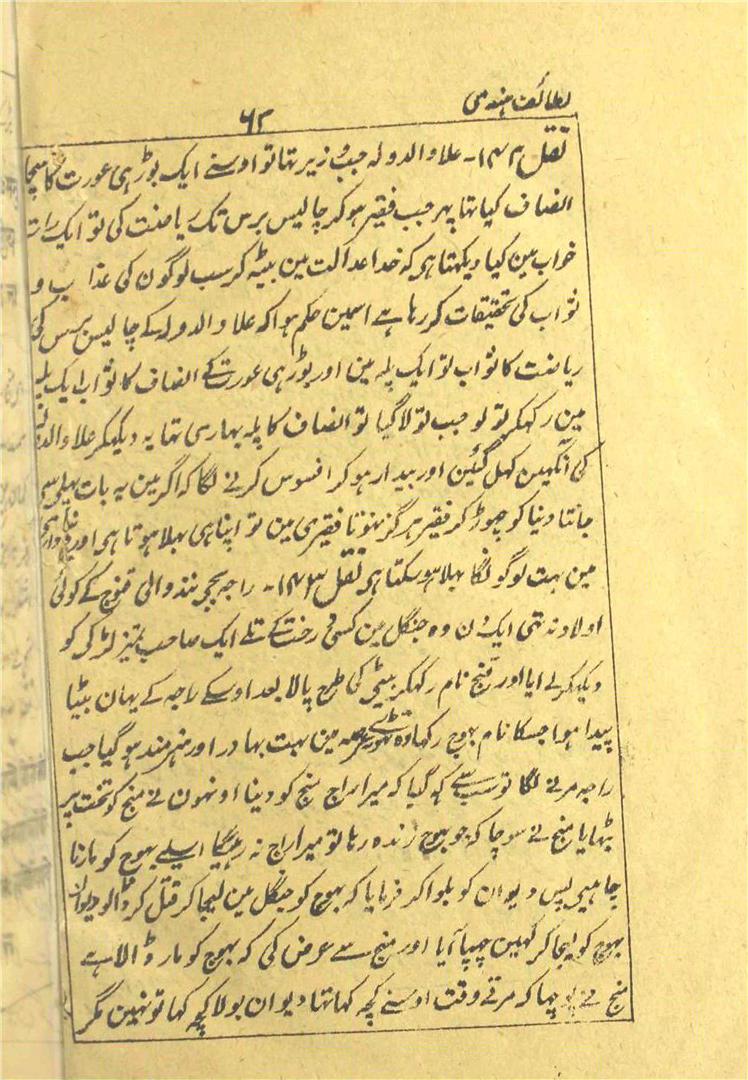 لطائف ہندی
۶۲
نقل ۱۴۲۔ علاوالدولہ جب وزیر تہا تو اوسنے ایک بوڑہی عورت کا سچا
انصاف کیا تہا پہر جب فقیر ہوکر چالیس برس تک ریاضت کی تو ایک رات
خواب مین کیا دیکہتا ہی کہ خدا عدالت مین بیٹہ کر سب لوگون کی عذاب و
ثواب کی تحقیقات کر رہا ہے اسمین حکم ہوا کہ علاوالدولہ کے چالیس برس کی
ریاضت کا ثواب تو ایک پلہ مین اور بوڑہی عورت کے انصاف کا ثواب ایک پلہ
مین رکہکر تولو جب تولا گیا تو انصاف کا پلہ بہاری تہا یہ دیکہکر علاءالدولہ
کی آنکہین کہل گئین اور بیدار ہوکر افسوس کرنے لگا کہ اگر مین یہ بات پہلی سی
جانتا دنیا کو چہوڑ کر فقیر ہرگز نہوتا فقیری مین تو اپنا ہی بہلا ہوتا ہی اور دنیاداری
مین بہت لوگونکا بہلا ہو سکتا ہی نقل ۱۴۳۔ راجہ بجر نند والی قنوج کے کوئی
اولاد نہ تہی ایک دن وہ جنگل مین کسی درخت کے تلے ایک صاحب تمیز لڑکی کو
دیکہکر لے ایا اور منج نام رکہکر بیٹی کی طرح پالا بعد اوسکے راجہ کے یہان بیٹا
پیدا ہوا جسکا نام بہوج رکہا وہ تہوڑے عرصہ مین بہت بہادر اور ہنر مند ہو گیا جب
راجہ مرنے لگا تو سب سے کہ گیا کہ میرا راج منج کو دینا اونہون نے منج کو تخت پر
بٹہایا منج نے سوچا کہ جو بہوج زندہ رہا تو میرا راج نہ رہیگا اسلیے بہوج کو مارنا
چاہیی پس دیوان کو بلواکر فرمایا کہ بہوج کو جنگل مین لیجاکر قتل کر ڈالو دیوان
بہوج کو لیجاکر کہین چہپا آیا اور منج سے عرض کی کہ بہوج کو مار ڈالا ہے
منج نے پوچہا کہ مرتے وقت اوسنے کچہ کہا تہا دیوان بولا کچہ کہا تو نہین مگر